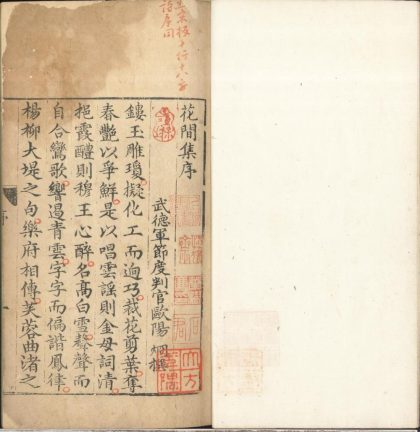 花間集序
武德軍節度判官歐陽 炯撰
鏤玉雕瓊擬化工而迥巧裁花剪葉奪
春艷以爭鮮是以唱雲謠則金母詞清
挹霞醴則穆王心醉名高白雪聲聲而
自合鸞歌響遏青雲字字而偏諧鳳律
楊柳大堤之句樂府相傳芙蓉曲渚之
序